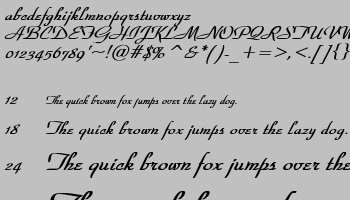 abcdefghijklmnopqrstuvwxyz
ABCDEFGHIJKLMNOPQRSTUVW
0123456789'~!@#$%^&*()-_+=>,<.[]{}
12 The quick brown fox jumps over the lazy dog.
18 The quick brown fox jumps over the lazy dog.
24 The quick brown fox jumps over the